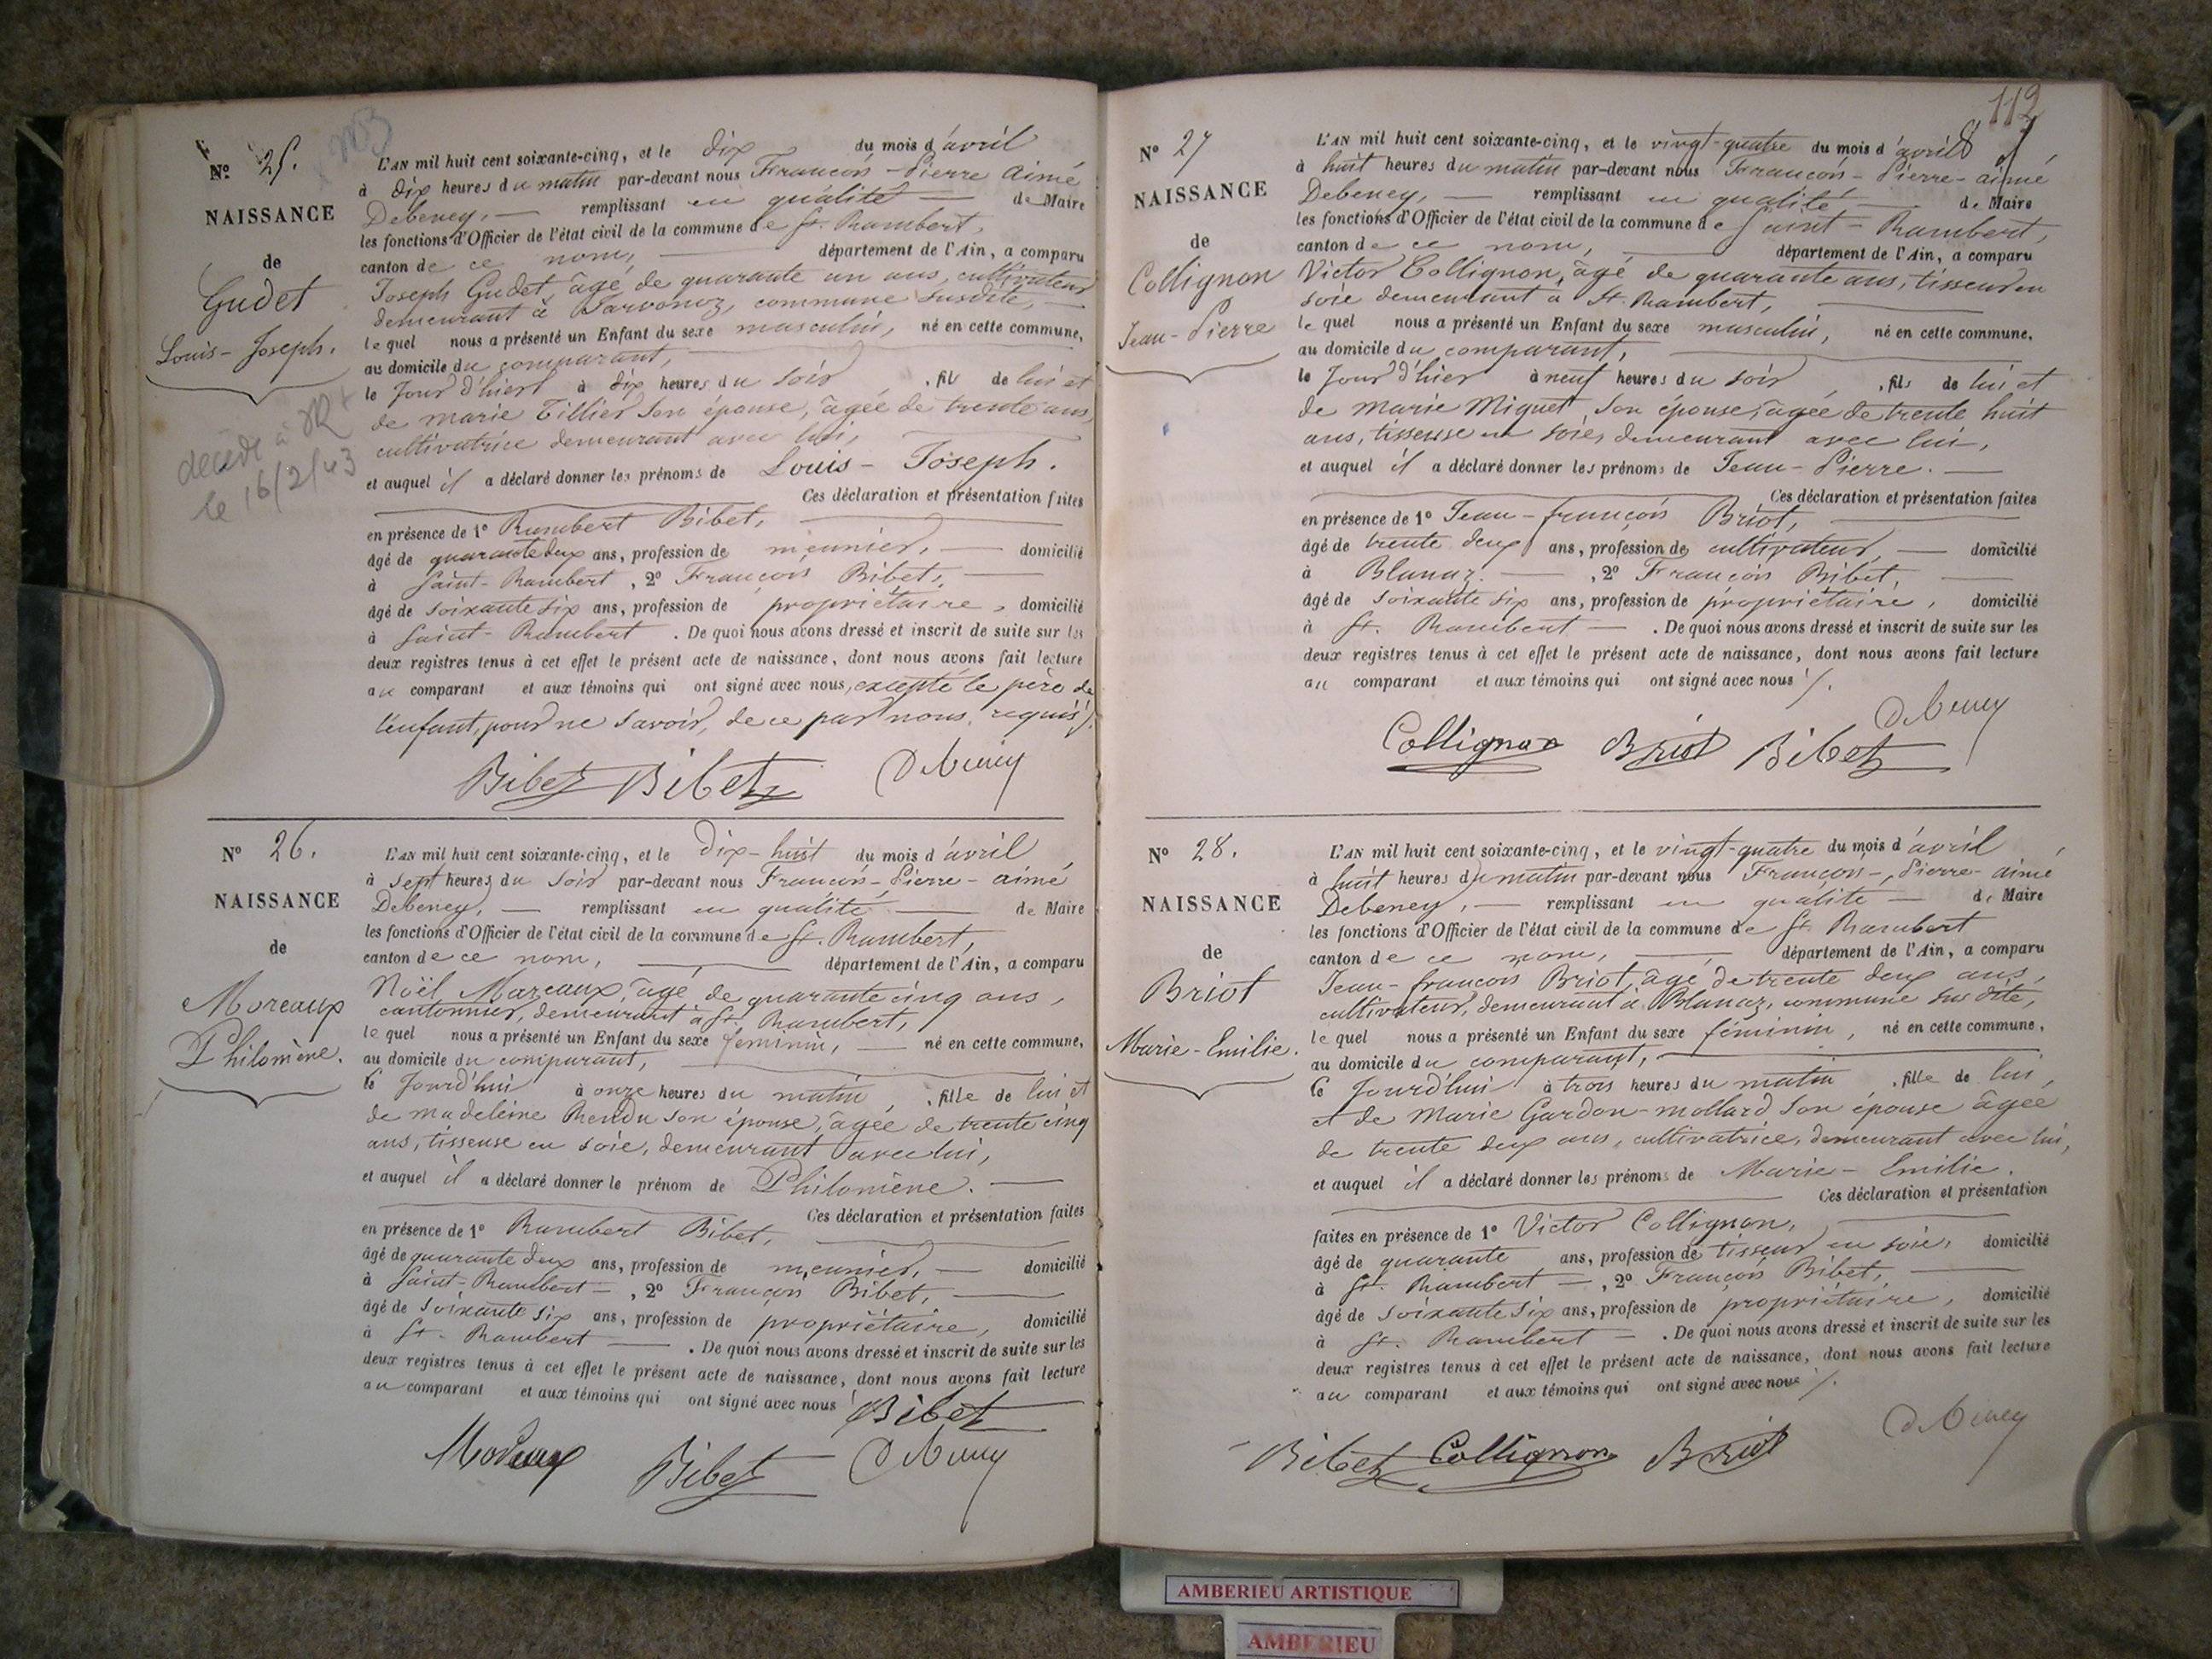 N° 25.
NAISSANCE
de
Gudet
Louis-Joseph.
décédé à
le 16/2/43
L'AN mil huit cent soixante-cinq, et le dix du mois d'avril
à dix heures du matin par-devant nous François-Pierre Aimé
Debeney, — remplissant en qualité — de Maire
les fonctions d'Officier de l'état civil de la commune de St. Rambert,
canton de ce nom, département de l'Ain, a comparu
Joseph Gudet âgé de quarante un ans, cultivateur
demeurant à Javornoz, commune susdite,
lequel nous a présenté un Enfant du sexe masculin, né en cette commune,
au domicile du comparant,
le Jour d'hier à dix heures du soir, fils de lui et
de marie Tillier son épouse, âgée de trente ans,
cultivatrice demeurant avec lui,
et auquel il a déclaré donner les prénoms de Louis-Joseph.
Ces déclaration et présentation faites
en présence de 1° Rambert Bibet,
âgé de quarante deux ans, profession de meunier, — domicilié
à Saint-Rambert, 2° François Bibet,
âgé de soixante six ans, profession de propriétaire, domicilié
à Saint-Rambert. De quoi nous avons dressé et inscrit de suite sur les
deux registres tenus à cet effet le présent acte de naissance, dont nous avons fait lecture
au comparant et aux témoins qui ont signé avec nous, excepté le père de
l'enfant, pour ne savoir, de ce par nous requis.
Bibet Bibet Debeney
N° 26.
NAISSANCE
de
Moreaux
Philomène.
L'AN mil huit cent soixante-cinq, et le dix-huit du mois d'avril,
à sept heures du soir par-devant nous François-Pierre-aimé
Debeney, — remplissant en qualité — de Maire
les fonctions d'Officier de l'état civil de la commune de St. Rambert,
canton de ce nom, département de l'Ain, a comparu
Noël Moreaux, âgé de quarante cinq ans,
cantonnier, demeurant à St. Rambert,
lequel nous a présenté un Enfant du sexe féminin, — né en cette commune,
au domicile du comparant,
le Jourd'hui à onze heures du matin, fille de lui et
de madeleine Rendu son épouse, âgée de trente cinq
ans, tisseuse en soie, demeurant avec lui,
et auquel il a déclaré donner le prénom de Philomène.
Ces déclaration et présentation faites
en présence de 1° Rambert Bibet,
âgé de quarante deux ans, profession de meunier, — domicilié
à Saint-Rambert —, 2° François Bibet,
âgé de soixante six ans, profession de propriétaire, domicilié
à St. Rambert — . De quoi nous avons dressé et inscrit de suite sur les
deux registres tenus à cet effet le présent acte de naissance, dont nous avons fait lecture
au comparant et aux témoins qui ont signé avec nous
Bibet
Moreaux Bibet Debeney
112
N° 27
NAISSANCE
de
Collignon
Jean-Pierre
L'AN mil huit cent soixante-cinq, et le vingt-quatre du mois d'avril
à huit heures du matin par-devant nous François-Pierre-aimé
Debeney, — remplissant en qualité — de Maire
les fonctions d'Officier de l'état civil de la commune de Saint-Rambert,
canton de ce nom, département de l'Ain, a comparu
Victor Collignon, âgé de quarante ans, tisseur en
soie demeurant à St. Rambert,
lequel nous a présenté un Enfant du sexe masculin, né en cette commune,
au domicile du comparant,
le Jour d'hier à neuf heures du soir, fils de lui et
de marie Miguet, son épouse, âgée de trente huit
ans, tisseuse en soie, demeurant avec lui,
et auquel il a déclaré donner les prénoms de Jean-Pierre.
Ces déclaration et présentation faites
en présence de 1° Jean-françois Briot,
âgé de trente deux ans, profession de cultivateur, — domicilié
à Blanaz. —, 2° François Bibet,
âgé de soixante six ans, profession de propriétaire, domicilié
à St. Rambert — . De quoi nous avons dressé et inscrit de suite sur les
deux registres tenus à cet effet le présent acte de naissance, dont nous avons fait lecture
au comparant et aux témoins qui ont signé avec nous
Collignon Briot Bibet Debeney
N° 28.
NAISSANCE
de
Briot
Marie-Emilie.
L'AN mil huit cent soixante-cinq, et le vingt-quatre du mois d'avril,
à huit heures du matin par-devant nous François-Pierre-aimé
Debeney, — remplissant en qualité — de Maire
les fonctions d'Officier de l'état civil de la commune de St. Rambert
canton de ce nom, département de l'Ain, a comparu
Jean-françois Briot, âgé de trente deux ans,
cultivateur, demeurant à Blanaz, commune sus dite,
lequel nous a présenté un Enfant du sexe féminin, né en cette commune,
au domicile du comparant,
le Jourd'hui à trois heures du matin, fille de lui,
et de Marie Gardon-mollard son épouse âgée
de trente deux ans, cultivatrice, demeurant avec lui,
et auquel il a déclaré donner les prénoms de Marie-Emilie.
Ces déclaration et présentation
faites en présence de 1° Victor Collignon,
âgé de quarante ans, profession de tisseur en soie, domicilié
à St. Rambert —, 2° François Bibet,
âgé de soixante six ans, profession de propriétaire, domicilié
à St. Rambert — . De quoi nous avons dressé et inscrit de suite sur les
deux registres tenus à cet effet le présent acte de naissance, dont nous avons fait lecture
au comparant et aux témoins qui ont signé avec nous
Bibet Collignon Briot Debeney
AMBERIEU ARTISTIQUE
AMBERIEU